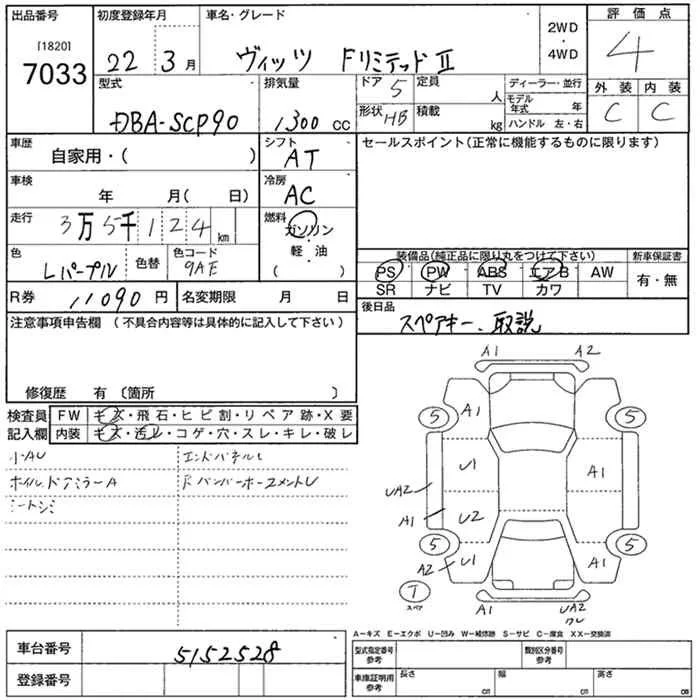 出品番号 初度登録年月 車名・グレード 評価点
[1820]
7033 22 3月 ヴィッツ Fリミテッド II 2WD・4WD 4
型式 排気量 ドア 5 定員 人 ディーラー・並行 外装 内装
DBA-SCP90 1300 CC 形状 HB 積載 kg モデル年式 年 C C
ハンドル 左・右
車歴 自家用・( ) シフト AT セールスポイント(正常に機能するものに限ります)
車検 年 月( 日) 冷房 AC
走行 3万5千124 km 燃料 ガソリン
軽・油
( )
色 Lパープル 色替 色コード 9AE 装備品(純正品に限り丸をつけて下さい) 新車保証書
PS PW ABS エアB AW 有・無
SR ナビ TV カワ
R券 11090 円 名変期限 月 日 後日品
スペアキー、取説
注意事項申告欄(不具合内容等は具体的に記入して下さい)
修復歴 有 〔箇所 〕
検査員 FW キズ・飛石・ヒビ割・リペア跡・X要
記入欄 内装 キズ・汚レ・コゲ・穴・スレ・キレ・破レ
小AU エンドパネルU
ホイル.ドアミラーA RバンパーホースメントU
シートシミ
A1 A2
5 A1 5
U1 A1
UA2
A1 U2
5 5
A2 U1 A1
T
スペア
A1 UA2
A-キズ E-エクボ U-凹み W-補修跡 S-サビ C-腐食 XX-交換済
車台番号 5152528 型式指定番号 参考 類別区分番号 参考
登録番号 車庫証明用 参考 長さ cm 幅 cm 高さ cm